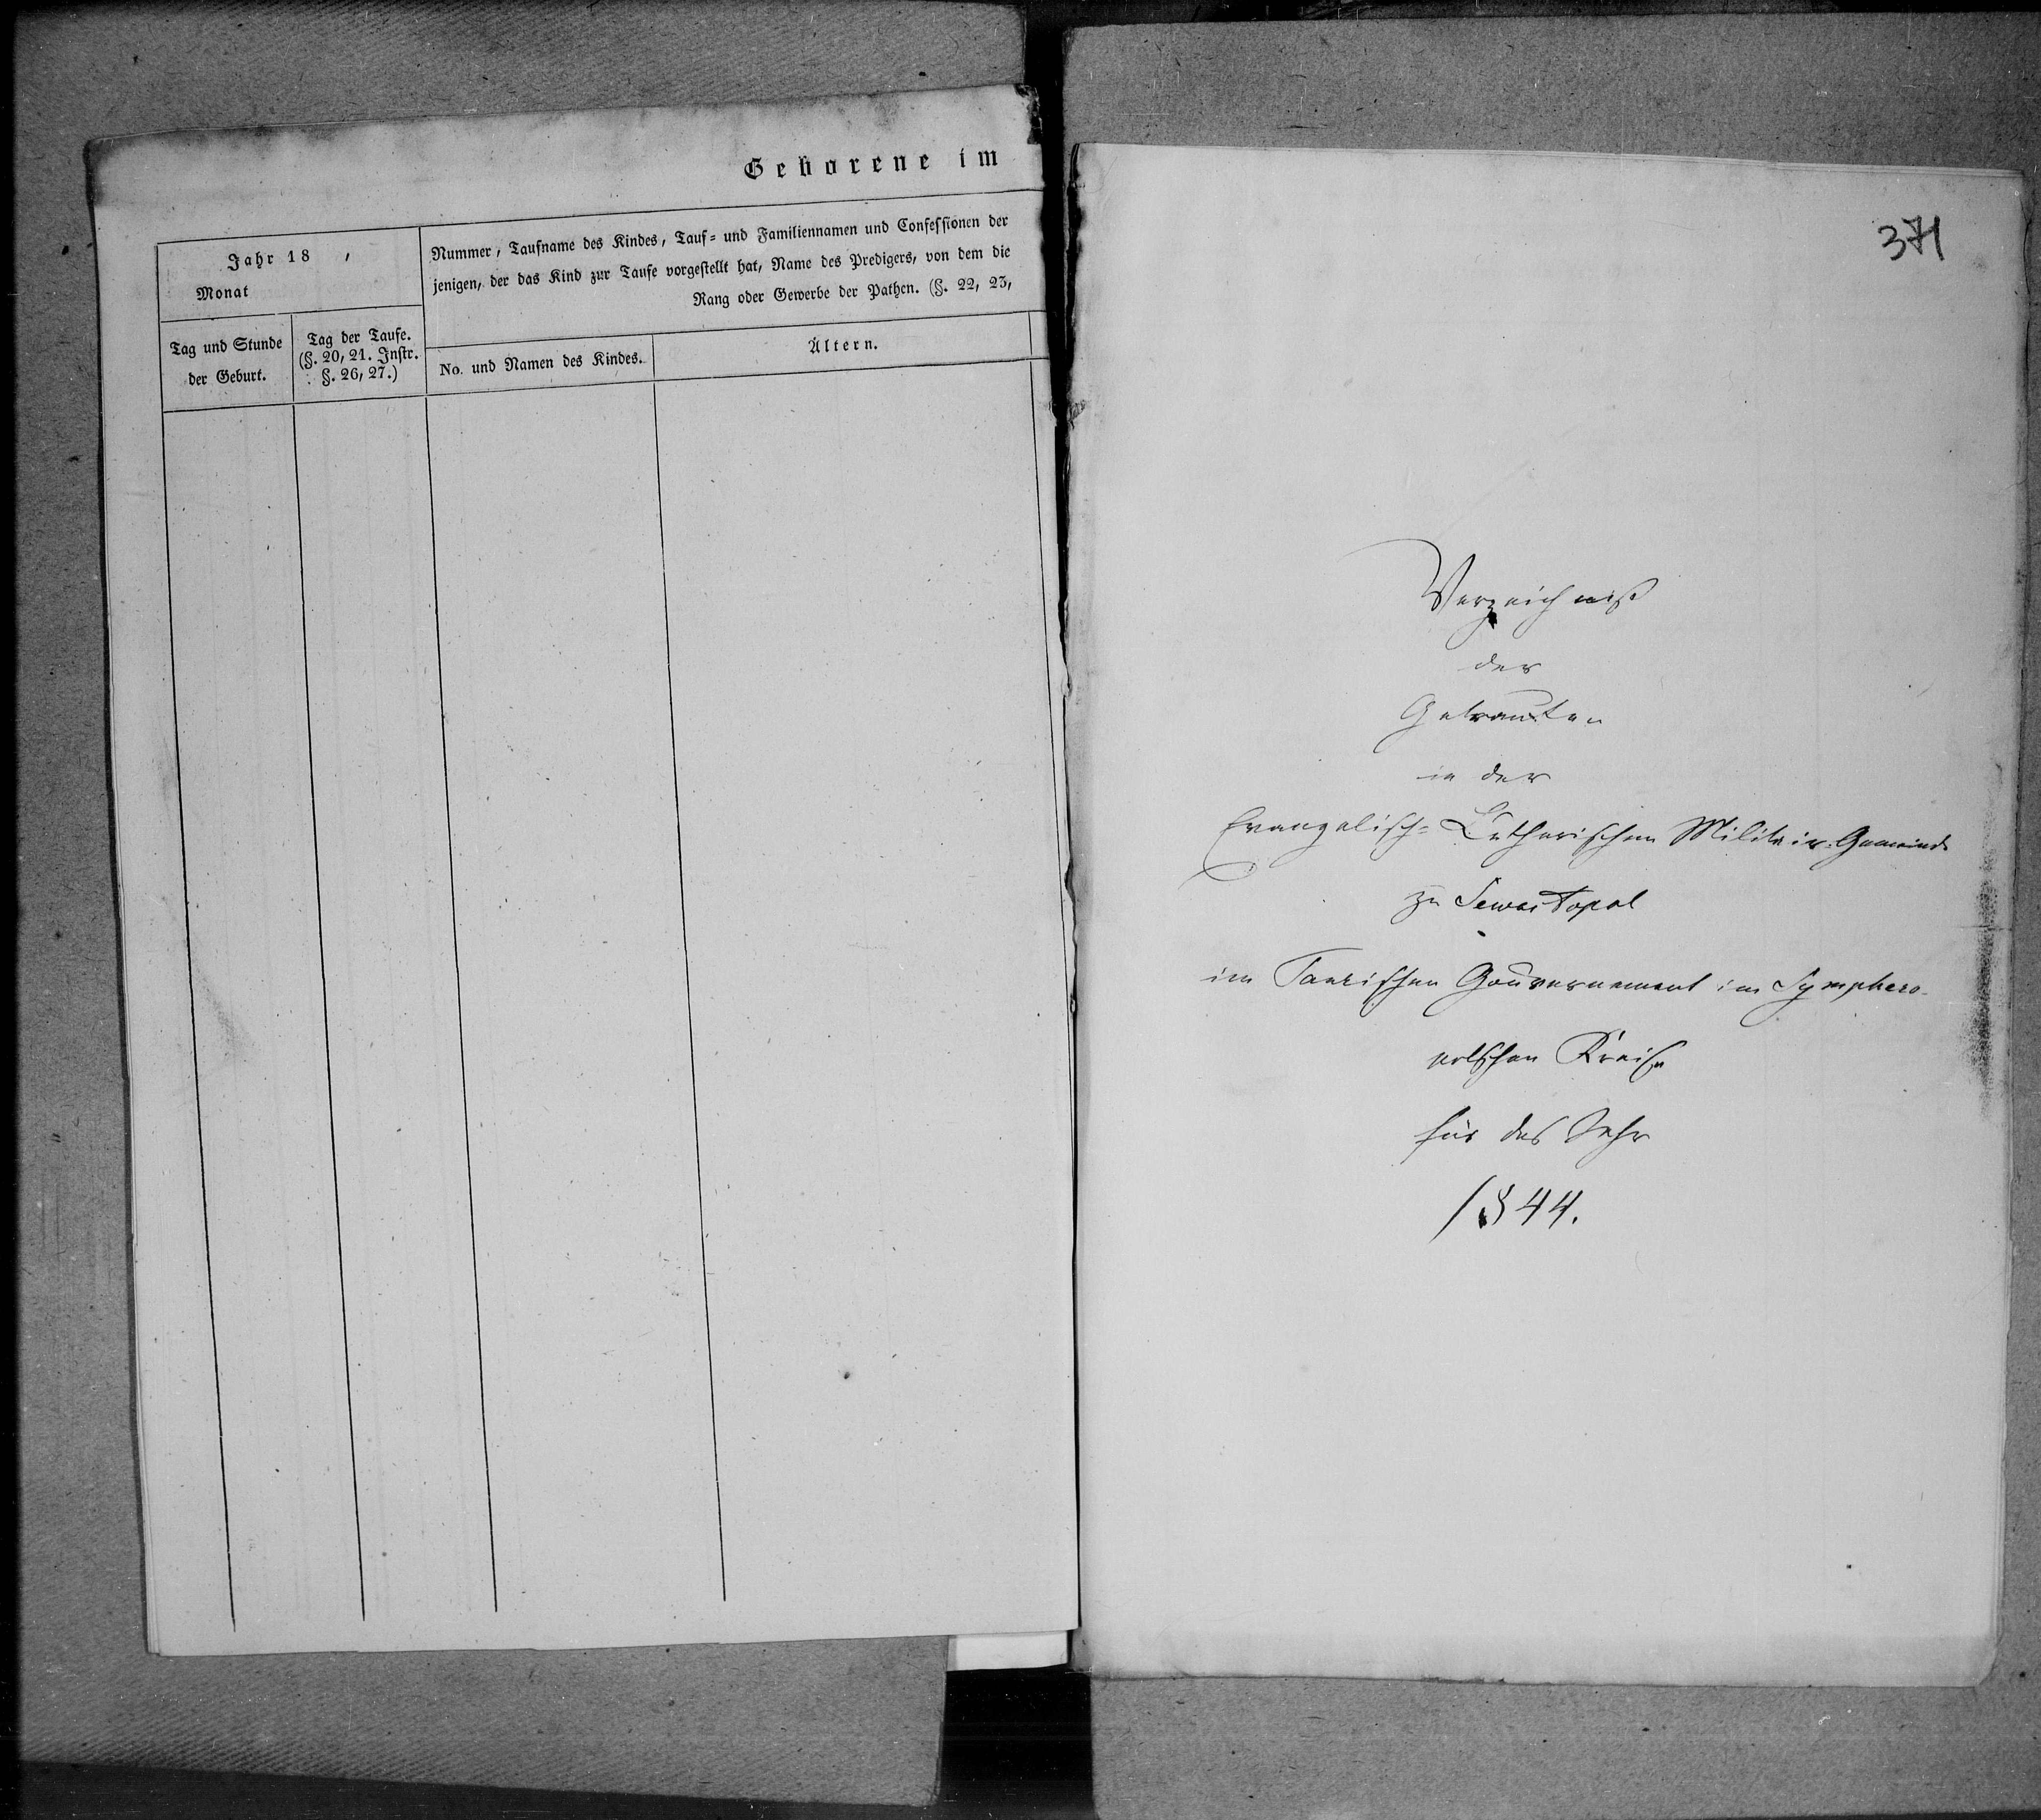 Geborene im
Jahr 18 ,
Monat
Nummer, Taufname des Kindes, Tauf= und Familiennamen und Confessionen der
jenigen, der das Kind zur Taufe vorgestellt hat, Name des Predigers, von dem die
Rang oder Gewerbe der Pathen. (§. 22, 23,
Tag und Stunde
der Geburt.
Tag der Taufe.
(§. 20, 21. Instr.
§. 26, 27.)
No. und Namen des Kindes.
Ältern.
371
Verzeichniß
der
Getrauten
in der
Evangelisch=Lutherischen Militair-Gemeinde
zu Sewastopol
im Taurischen Gouvernement im Symphero-
polschen Kreise
für das Jahr
1844.